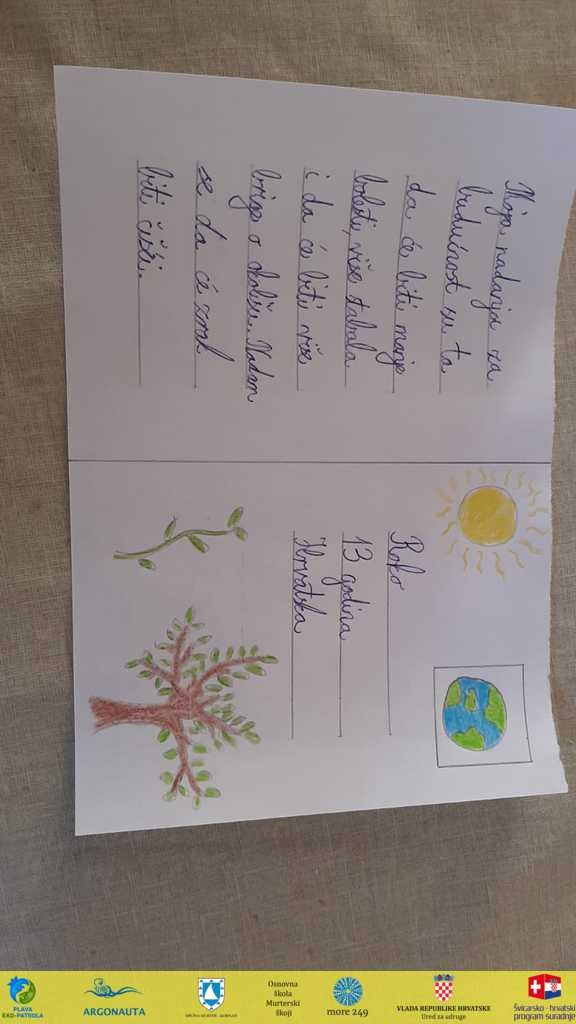 Moja nadanja za
budućnost su ta
da će biti manje
bolesti, više stabala
i da će biti više
brige o okolišu. Nadam
se da će zrak
biti čišći.
Roko
13 godina
Hrvatska
PLAVA
EKO-PATROLA
ARGONAUTA
Osnovna
škola
Murterski
škoji
more 249
VLADA REPUBLIKE HRVATSKE
Ured za udruge
Švicarsko - hrvatski
program suradnje